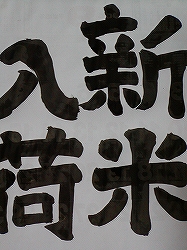 新米
入荷